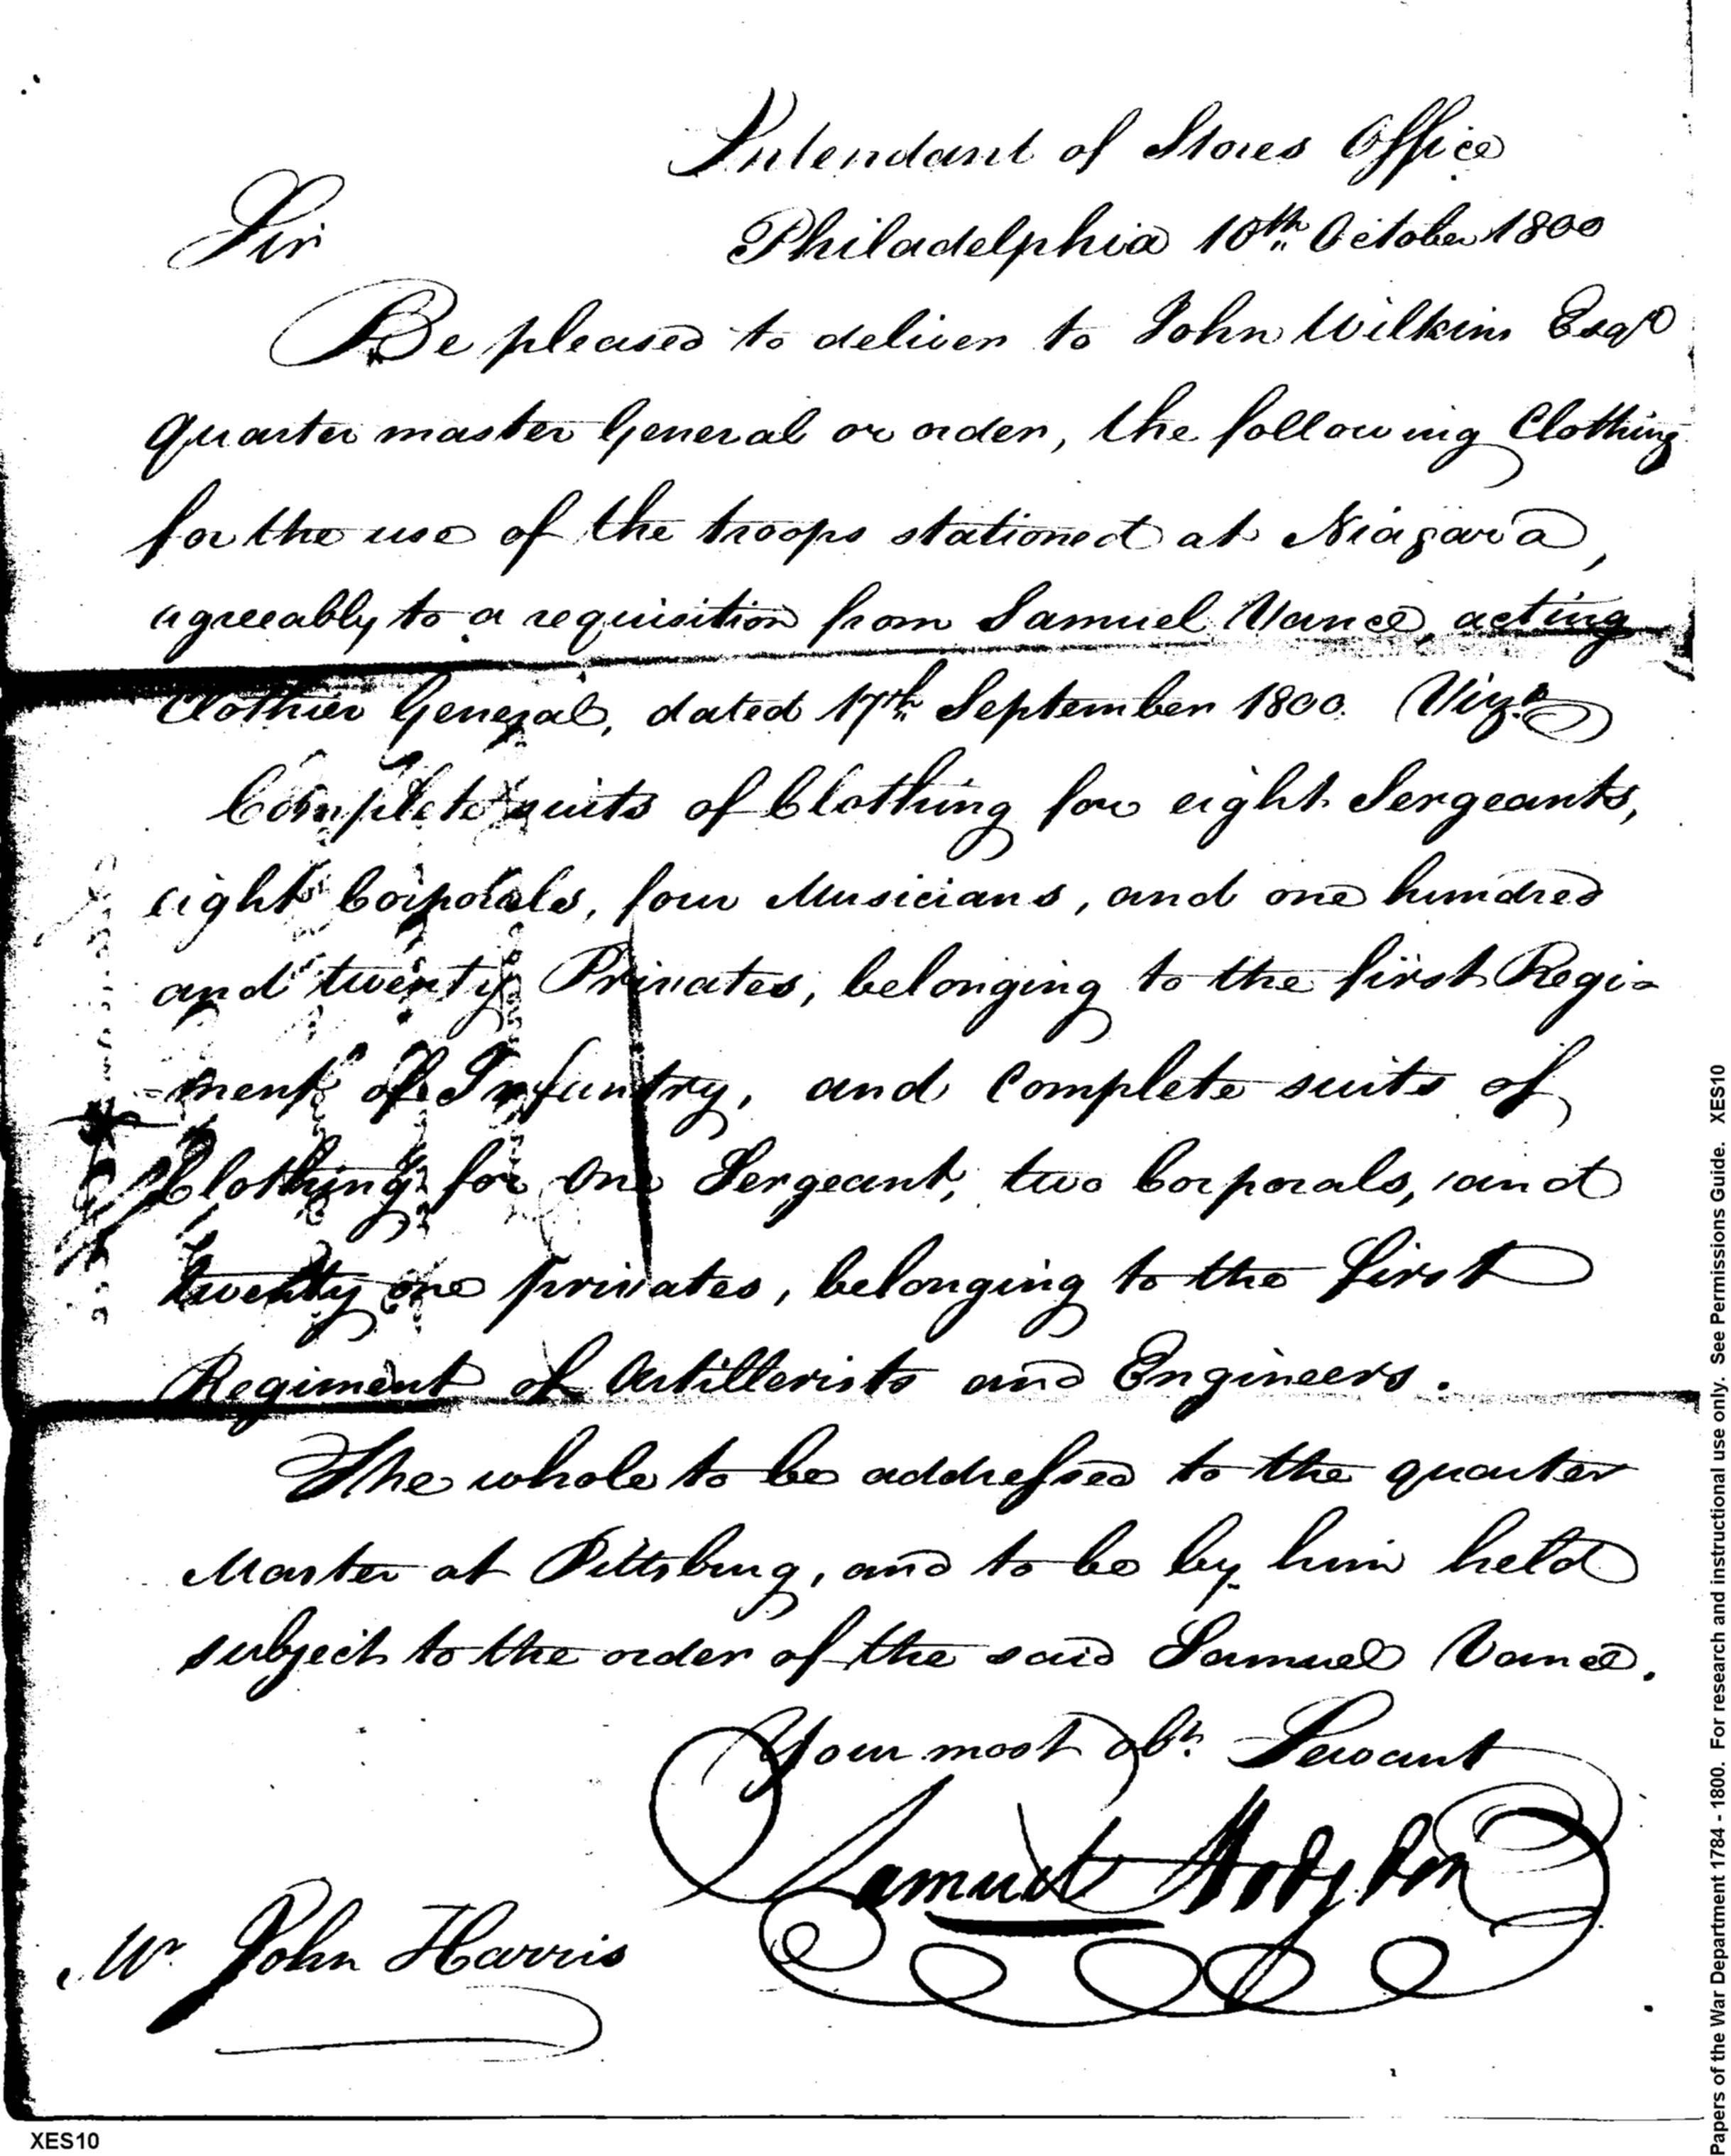 Intendant of Stores Office
Sir
Philadelphia 10th October 1800
Be pleased to deliver to John Wilkins Esqr
quarter master General or order, the following Clothing
for the use of the troops stationed at Niagara,
agreeably to a requisition from Samuel Vance, acting
Clothier General, dated 17th September 1800. Vizt
Complete suits of Clothing for eight Sergeants,
eight Corporals, four Musicians, and one hundred
and twenty Privates, belonging to the first Regi-
-ment of Infantry, and Complete suits of
Clothing for One Sergeant, two Corporals, and
twenty one privates, belonging to the first
Regiment of Artillerists and Engineers.
The whole to be addressed to the quarter
Master at Pittsburg, and to be by him held
subject to the order of the said Samuel Vance.
Your most obt. Servant
Samuel Hodgdon
Mr John Harris
XES10
Papers of the War Department 1784 - 1800. For research and instructional use only. See Permissions Guide. XES10